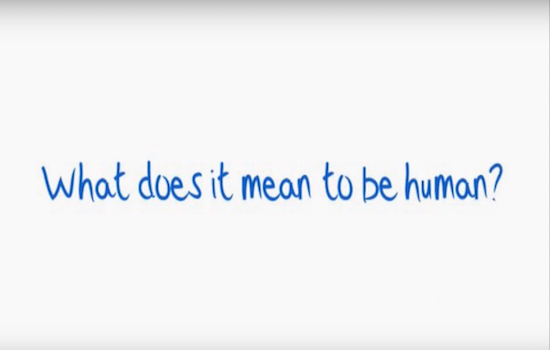 What does it mean to be human?